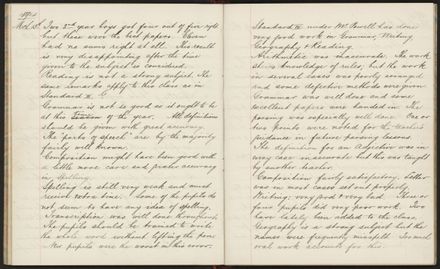 1904
Feb. 5th Two 2nd year boys got four out of five right
but these were the best papers. Seven
had no sums right at all. This result
is very disappointing after the time
given to the subject is considered.
Reading is not a strong subject. The
same remarks apply to this class as in
Standard
Grammar is not as good as it ought to be
at this of the year. All definitions
should be given with great accuracy.
The 'parts of speech' are by the majority
fairly well known.
Composition might have been good with
a little more care and greater accuracy
in spelling.
Spelling is still very weak and must
receive extra time. Some of the pupils do
not seem to have any idea of spelling.
Transcription was well done throughout.
The pupils should be trained to write
the whole word without lifting the pen
The pupils were the worst in this error.
Standard under Mr. Powell has done
very good work in Grammar, Writing
Geography & Reading.
Arithmetic was inaccurate. The work
shows knowledge of rules, but the work
in several cases was poorly arranged
and some defective methods were given
Grammar was well done and some
excellent papers were handed in. The
parsing was especially well done. One or
two points were noted for the teacher's
guidance in future parsing lessons.
The definition for an Adjective was in
every case inaccurate but this was taught
by another teacher.
Composition fairly satisfactory. Letter
was in most cases set out properly.
Writing: very good to good. Three or
four pupils did very poor work. Two
have lately been added to the class.
Geography is a strong subject but the
names were frequently misspelt. Increased
oral work accounts for this.